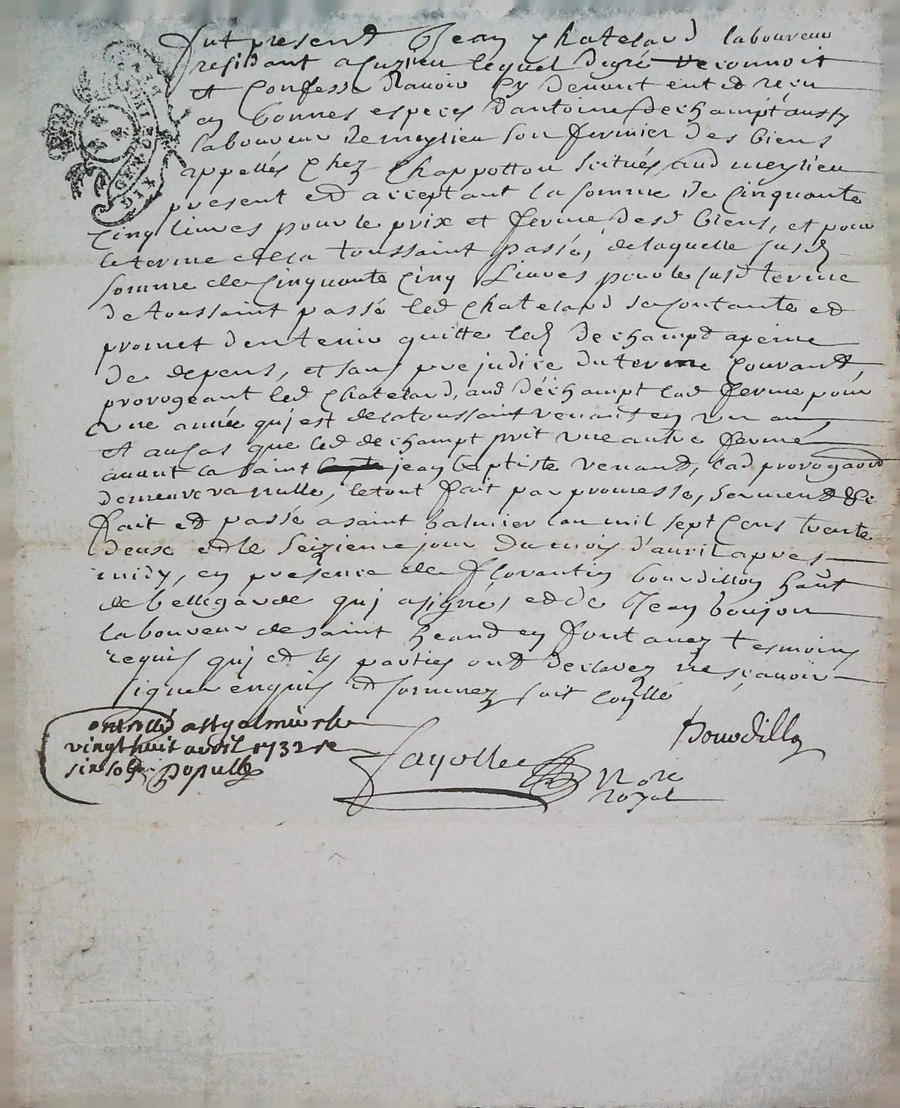 fut present Jean Chatelard laboureur
residant a Cuzieu lequel de gré reconnoit
et Confesse d'avoir cy devant eut et receu
en bonnes especes d'antoine dechampt aussy
laboureur de meylieu son fermier des biens
appellés Chez Chappotton scitués aud meylieu
present et acceptant la somme de Cinquante
Cinq livres pour le prix et ferme desd biens, et pour
le terme de la toussaint passé, de laquelle susd
somme de Cinquante Cinq Livres pour le susd terme
de toussaint passé led Chatelard se contante et
promet d'en tenir quitte led dechampt a peine
de depens, et sans prejudice du terme Courant,
provogeant led Chatelard, aud déchampt lad ferme pour
une année qui est de la toussaint venant en un an,
et au Cas que led dechampt prit une autre ferme
avant la saint jean baptiste venant, lad provogaõn
demeurera nulle, le tout fait par promesse, serment &c
fait et passé a saint balmier l'an mil sept Cens trente
deux et le seizieme jour du mois d'avril apres
midy, en presence de florantin bourdillon
de bellegarde qui a signés, et de Jean boujon
laboureur de saint heand en fontanez tesmoins
requis qui et les parties ont declarez ne sçavoir
signer enquis et sommez soit Coñllé
Bourdillon
Controllé a St galmier le
vingt huit avril 1732 Re
six sols
fayolle
Nore
royal
GEN DE LYON